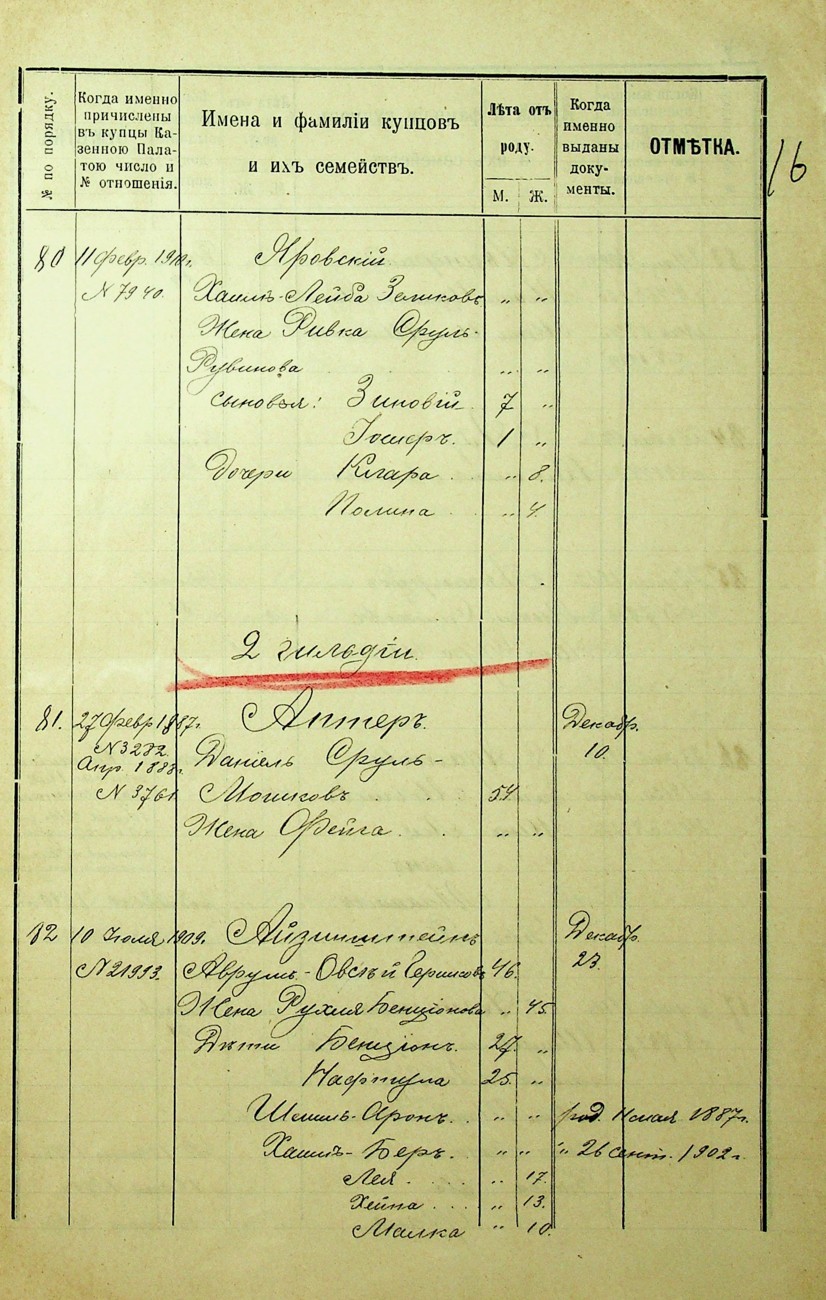 16
№ по порядку.
Когда именно
причислены
въ купцы Ка-
зенною Пала-
тою число и
№ отношенія.
Имена и фамиліи купцовъ
и ихъ семействъ.
Лѣта отъ
роду.
М. Ж.
Когда
именно
выданы
доку-
менты.
ОТМѢТКА.
80 11 февр. 1910 г. Яровскій
N 7940. Хаимъ-Лейба Зеликовъ „ „
Жена Ривка Сруль-
Рувинова „ „
сыновья: Зиновій 7 „
1 „
Дочери Клара „ 8.
Полина „ 4.
2 гильдіи.
81. 27 февр 1887 г. Аптеръ. Декабр.
N 3282. Даніель Сруль- 10.
Апр. 1888 г.
N 3761 Мошковъ 54.
Жена Фейга „ „
82 10 Іюля 1909 г. Айзинштейнъ Декабр.
N 21993. Аврумъ-Овсѣй Гершковъ 46. 23.
Жена Рухля Бенціонова „ 45.
Дѣти Бенціонъ. 27. „
Нафтула 25. „
Шмиль-Аронъ „ „ род. 11 мая 1887 г.
Хаимъ-Беръ. „ „ „ 26 сент. 1902 г.
Лея „ 17.
Хейна „ 13.
Малка „ 10.